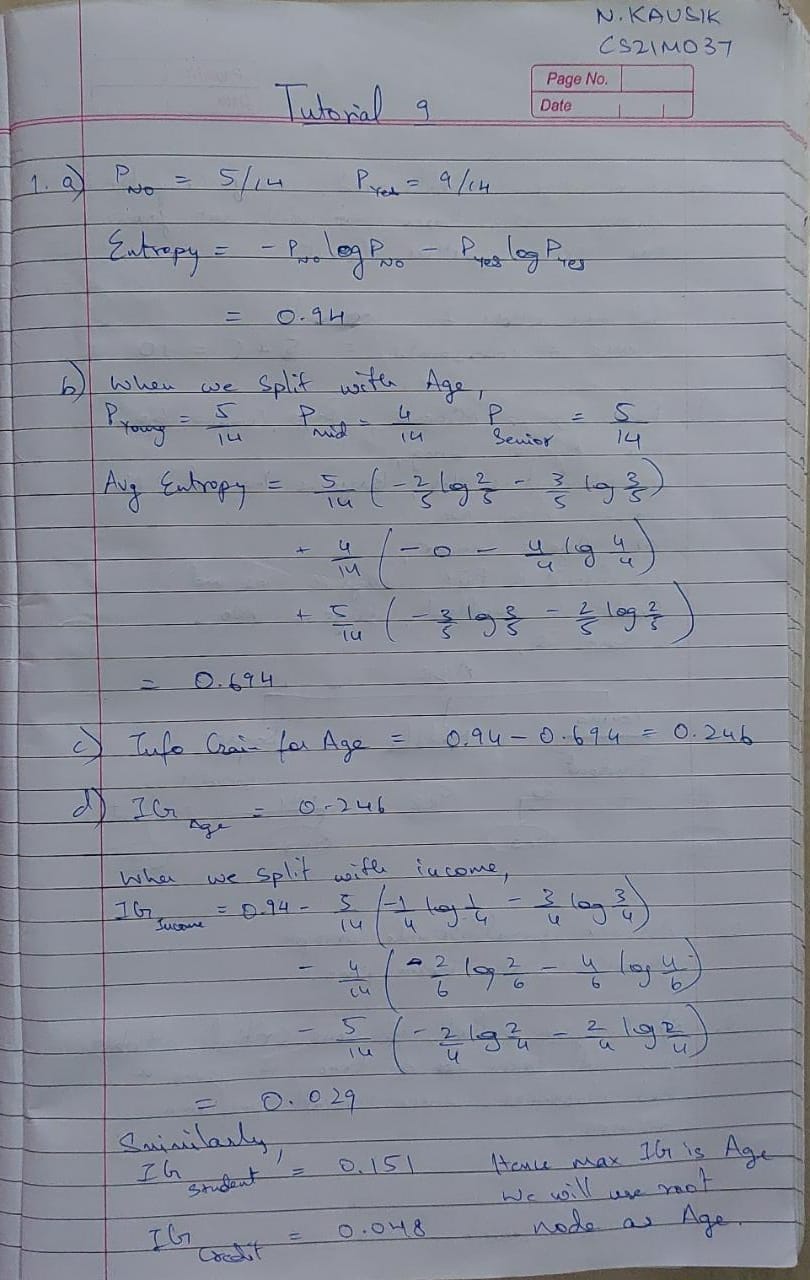 N. KAUSIK
CS21M037
Page No.
Date
Tutorial 9
1. a) P_No = 5/14 P_Yes = 9/14
Entropy = - P_No log P_No - P_Yes log P_Yes
= 0.94
b) When we split with Age,
P_Young = 5/14 P_mid = 4/14 P_Senior = 5/14
Avg Entropy = 5/14 (-2/5 log 2/5 - 3/5 log 3/5)
+ 4/14 (-0 - 4/4 log 4/4)
+ 5/14 (-3/5 log 3/5 - 2/5 log 2/5)
= 0.694
c) Info Gain for Age = 0.94 - 0.694 = 0.246
d) IG_Age = 0.246
When we split with income,
IG_Income = 0.94 - 5/14 (-1/4 log 1/4 - 3/4 log 3/4)
- 4/14 (-2/6 log 2/6 - 4/6 log 4/6)
- 5/14 (-2/4 log 2/4 - 2/4 log 2/4)
= 0.029
Similarly,
IG_Student = 0.151 Hence max IG is Age
We will use root
IG_Credit = 0.048 node as Age.